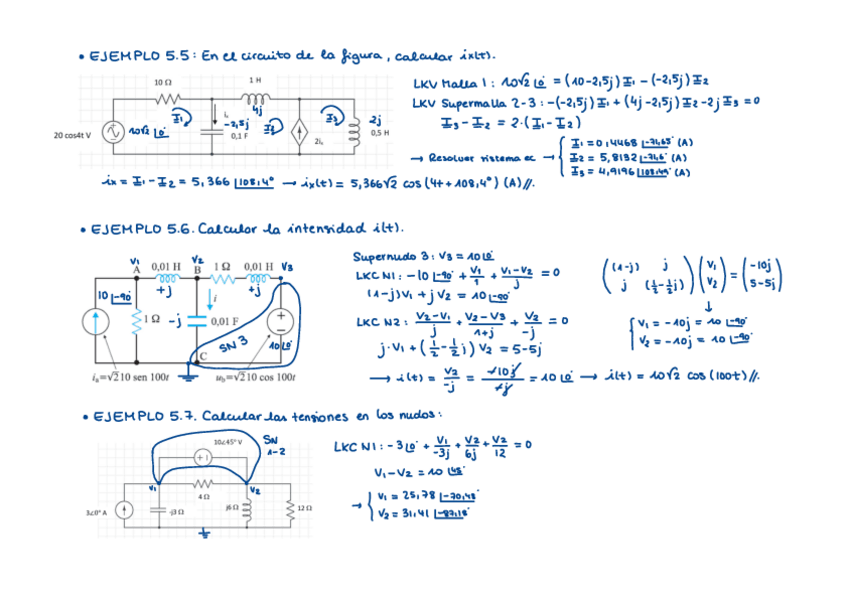 • EJEMPLO 5.5: En el circuito de la figura, calcular ix(t).
10 Ω
1 H
4j
I1
ix
-2,5j
0,1 F
I2
2ix
I3
2j
0,5 H
20 cos4t V
10√2 ∠0°
LKV Malla 1: 10√2 ∠0° = (10-2,5j) I1 - (-2,5j) I2
LKV Supermalla 2-3: -(-2,5j) I1 + (4j-2,5j) I2 - 2j I3 = 0
I3 - I2 = 2·(I1 - I2)
→ Resolver sistema ec →
I1 = 0,4468 (A)
I2 = 5,8132 (A)
I3 = 4,9196 (A)
ix = I1 - I2 = 5,366 ∠108,4° → ix(t) = 5,366√2 cos (4t + 108,4°) (A)//.
• EJEMPLO 5.6. Calcular la intensidad i(t).
V1
A
0,01 H
+j
V2
B
1 Ω
0,01 H
+j
V3
10 ∠-90°
1 Ω
-j
i
0,01 F
SN 3
10 ∠0°
C
is=√2 10 sen 100t
u0=√2 10 cos 100t
Supernudo 3: V3 = 10 ∠0°
LKC N1: -10 ∠-90° + V1/1 + (V1-V2)/j = 0
(1-j) V1 + j V2 = 10 ∠-90°
LKC N2: (V2-V1)/j + (V2-V3)/(1+j) + V2/-j = 0
j·V1 + (1/2 - 1/2 i) V2 = 5-5j
((1-j) j
j (1/2-1/2j)) (V1
V2) = (-10j
5-5j)
↓
V1 = -10j = 10 ∠-90°
V2 = -10j = 10 ∠-90°
→ i(t) = V2/-j = -10j/-j = 10 ∠0° → i(t) = 10√2 cos (100t)//.
• EJEMPLO 5.7. Calcular las tensiones en los nudos:
10∠45° V
SN
1-2
V1
4 Ω
V2
3∠0° A
-j3 Ω
j6 Ω
12 Ω
LKC N1: -3 ∠0° + V1/-3j + V2/6j + V2/12 = 0
V1 - V2 = 10 ∠45°
→
V1 = 25,78 ∠-70,48°
V2 = 31,41 ∠-87,18°